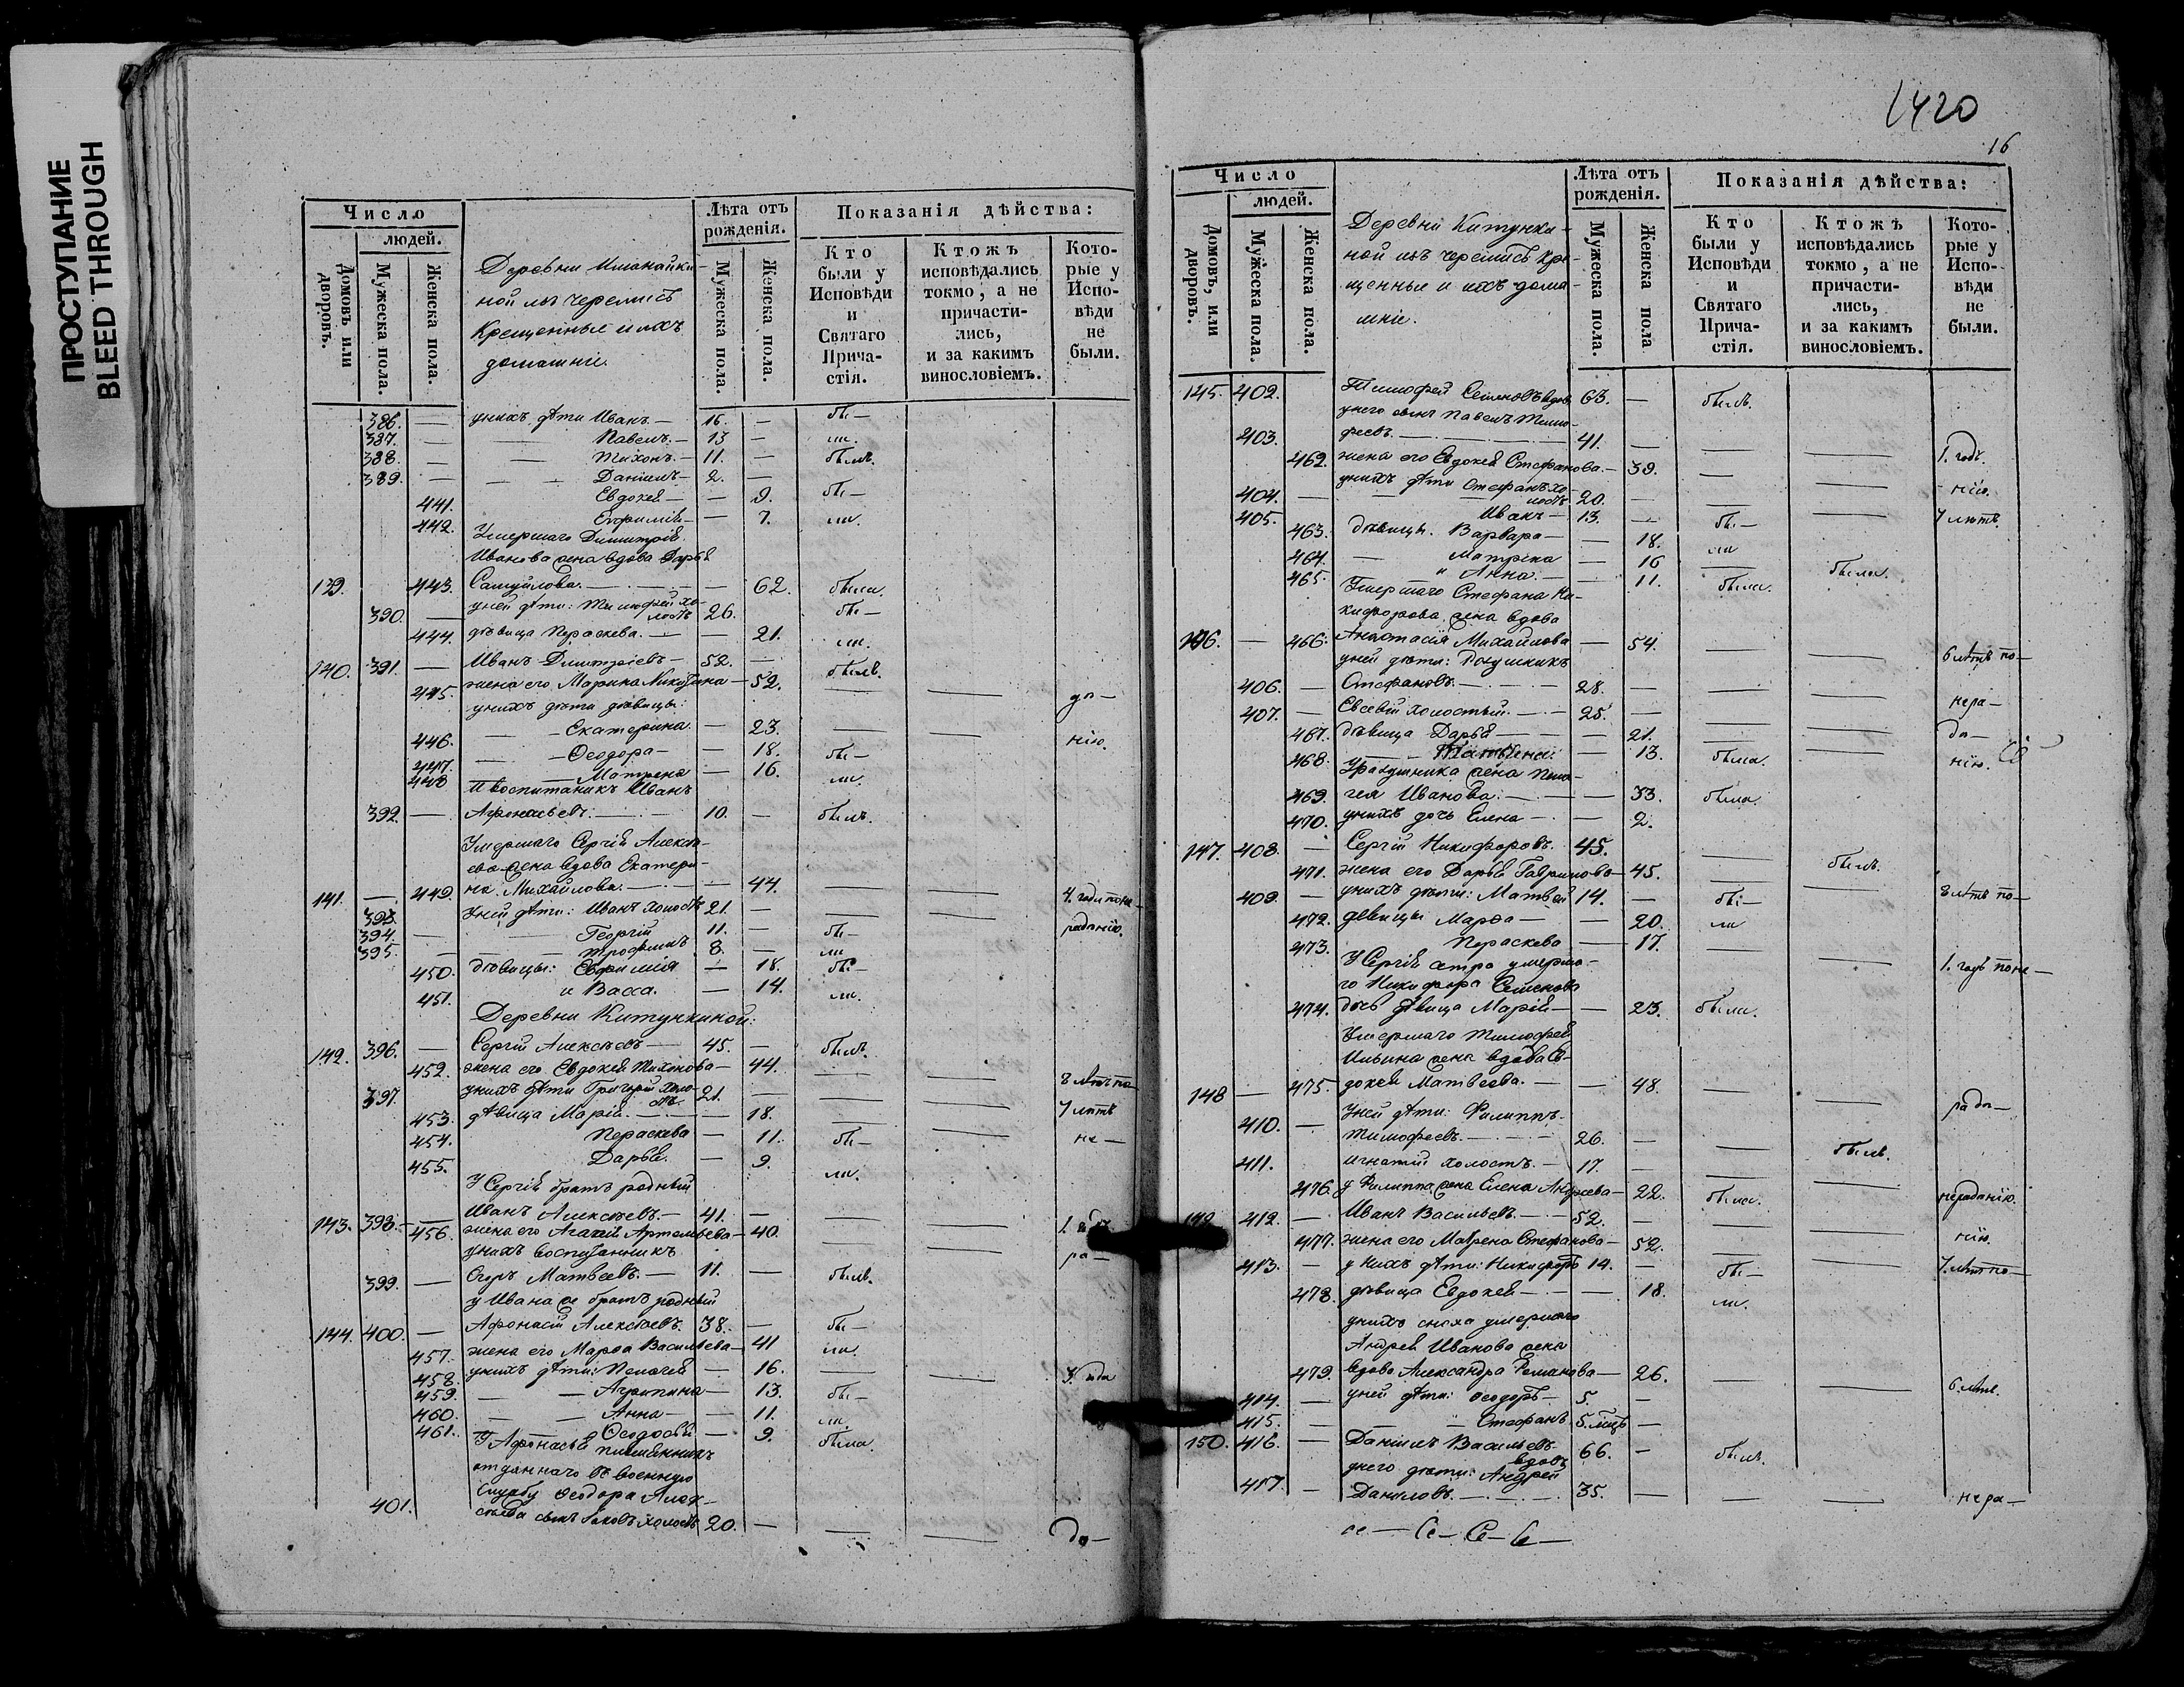 ПРОСТУПАНИЕ
BLEED THROUGH
Число
людей.
Домовъ или дворовъ.
Мужеска пола.
Женска пола.
Деревни
ной изъ черемисъ
Крещенные и ихъ
домашніе.
Лѣта отъ рожденія.
Мужеска пола.
Женска пола.
Показанія дѣйства:
Кто были у Исповѣди и Святаго Прича- стія.
Ктожъ исповѣдались токмо, а не причасти- лись, и за какимъ винословіемъ.
Кото- рые у Испо- вѣди не были.
386. — у нихъ дѣти Иванъ. — 16. — бы —
387. — Павелъ. — 13 — ли.
388. — Тихонъ. — 11. — былъ.
389. — Даніилъ — 2. —
441. Евдокея — — 9. бы —
442. Евфимія — — 7. ли.
Умершаго Димитрія
Иванова жена вдова Дарья
139. 443. Самуйлова. — — 62. была.
390. — у ней дѣти: Тимофей хо-
лостъ 26. бы —
444. дѣвица Параскева. — — 21. ли.
140. 391. — Иванъ Димитріевъ — 52. — былъ.
445. жена его Марина Никитина — 52. — — до —
у нихъ дѣти дѣвицы:
446. — Екатерина — 23. — — нію.
447. — Ѳеодора — — 18. бы —
448 — Матрена — 16. ли.
И воспитаникъ Иванъ
392. — Афонасьевъ. — 10. — былъ.
Умершаго Сергія Алексѣ-
ева жена вдова Екатери-
141. — 449. на Михайлова. — — 44. — — 4. года по не-
393. У ней дѣти: Иванъ холостъ 21. — — — радѣнію.
394. — Георгій 11. — бы —
395. — Трофимъ 8. — ли
450. дѣвицы: Евфимія — 18. бы —
451. и Васса. — 14. ли.
Деревни Китункиной:
142. 396. — Сергій Алексѣевъ — 45. — былъ.
452. жена его Евдокея Тихонова — 44. — — 8 лѣтъ по
397. у нихъ дѣти Григорій холо-
стъ 21. — — — 7 лѣтъ
453. дѣвица Марія. — — 18. — — не —
454. Параскева — 11. бы —
455. Дарья. — 9. ли.
У Сергія братъ родный
143. 398. — Иванъ Алексѣевъ. — 41. — — —
456. жена его Агафія Артемьева — 40. — — ра —
у нихъ воспитанникъ
399. — Егоръ Матвѣевъ. — 11. — былъ.
у Ивана же братъ родный
144. 400. — Афонасій Алексѣевъ. 38. — бы —
457. жена его Марѳа Васильева — 41 ли.
458. у нихъ дѣти: Пелагея — 16. — — года
459. — Агрипина — 13. бы —
460. — Анна — — 11. ли.
461. — Ѳеодосья — 9. была.
У Афонасья племянникъ
отданнаго въ военную
службу Ѳеодора Алек-
401. сѣева сынъ Яковъ холостъ 20. — — — до —
1420
16
Число
людей.
Домовъ, или дворовъ.
Мужеска пола.
Женска пола.
Деревни Китунки-
ной изъ черемисъ Кре-
щенные и ихъ дома-
шніе.
Лѣта отъ рожденія.
Мужеска пола.
Женска пола
Показанія дѣйства:
Кто были у Исповѣди и Святаго Прича- стія.
Ктожъ исповѣдались токмо, а не причасти- лись, и за какимъ винословіемъ.
Кото- рые у Испо- вѣди не были.
145. 402. Тимофей Семеновъ вдов. 63. — былъ.
у него сынъ Павелъ Тимо-
403. феевъ. — 41. — — — 1. годъ.
462. жена его Евдокея Стефанова. — 39. — — нію.
404. — у нихъ дѣти Стефанъ хо-
лостъ 20. — — — 7 лѣтъ
405. Иванъ — 13. — бы —
463. дѣвицы. Варвара — — 18. ли
464. — Матрена — 16 — была.
465. " Анна. — — 11. была.
Умершаго Стефана Ни-
кифорова жена вдова
146. — 466. Анастасія Михайлова — 54. — — 6 лѣтъ по —
у ней дѣти:
406. — Стефановъ. — 28. — — — нера —
407. — Евсевій холостый. — 25. — — — дѣ —
467. дѣвица Дарья — — 21. — — нію.
468. — Татіана — 13. была.
жена Пела-
469. гея Иванова. — — 33. была.
470. у нихъ дочь Елена — — 2.
147. 408. — Сергій Никифоровъ. 45. — былъ.
471. жена его Дарья Гаврилова — 45. — — 8 лѣтъ по —
409. — у нихъ дѣти: Матвей 14. — бы —
472. дѣвицы Марѳа — — 20. ли
473. Параскева — 17. — — 1. годъ по не —
У Сергія сестра умерша-
го Никифора Семенова
474. дочь дѣвица Марія — — 23. была.
Умершаго Тимофея
Ильина жена вдова Ев-
148 — 475. докея Матвеева. — — 48. — — радѣ —
410. — У ней дѣти: Филиппъ
Тимофеевъ. — 26. — — былъ.
411. Игнатій холостъ. — 17. — — — нерадѣнію.
476. у Филиппа жена Елена Андреева — 22. была.
149 412. — Иванъ Васильевъ — 52. — — — нію.
477. жена его Матрена Стефанова — 52. — — 7. лѣтъ по —
413. — у нихъ дѣти: Никифоръ 14. — бы —
478. дѣвица Евдокея — — 18. ли.
у нихъ сноха умершаго
Андрея Иванова жена
479. вдова Александра Романова — 26. — — 6. лѣтъ.
414. — у ней дѣти: Ѳеодоръ — 5. —
415. — " Стефанъ 5. мцъ —
150. 416. — Даніилъ Васильевъ
вдовъ 66. — былъ.
у него дѣти: Андрей
417. — Даниловъ. — 35. — — — нера —